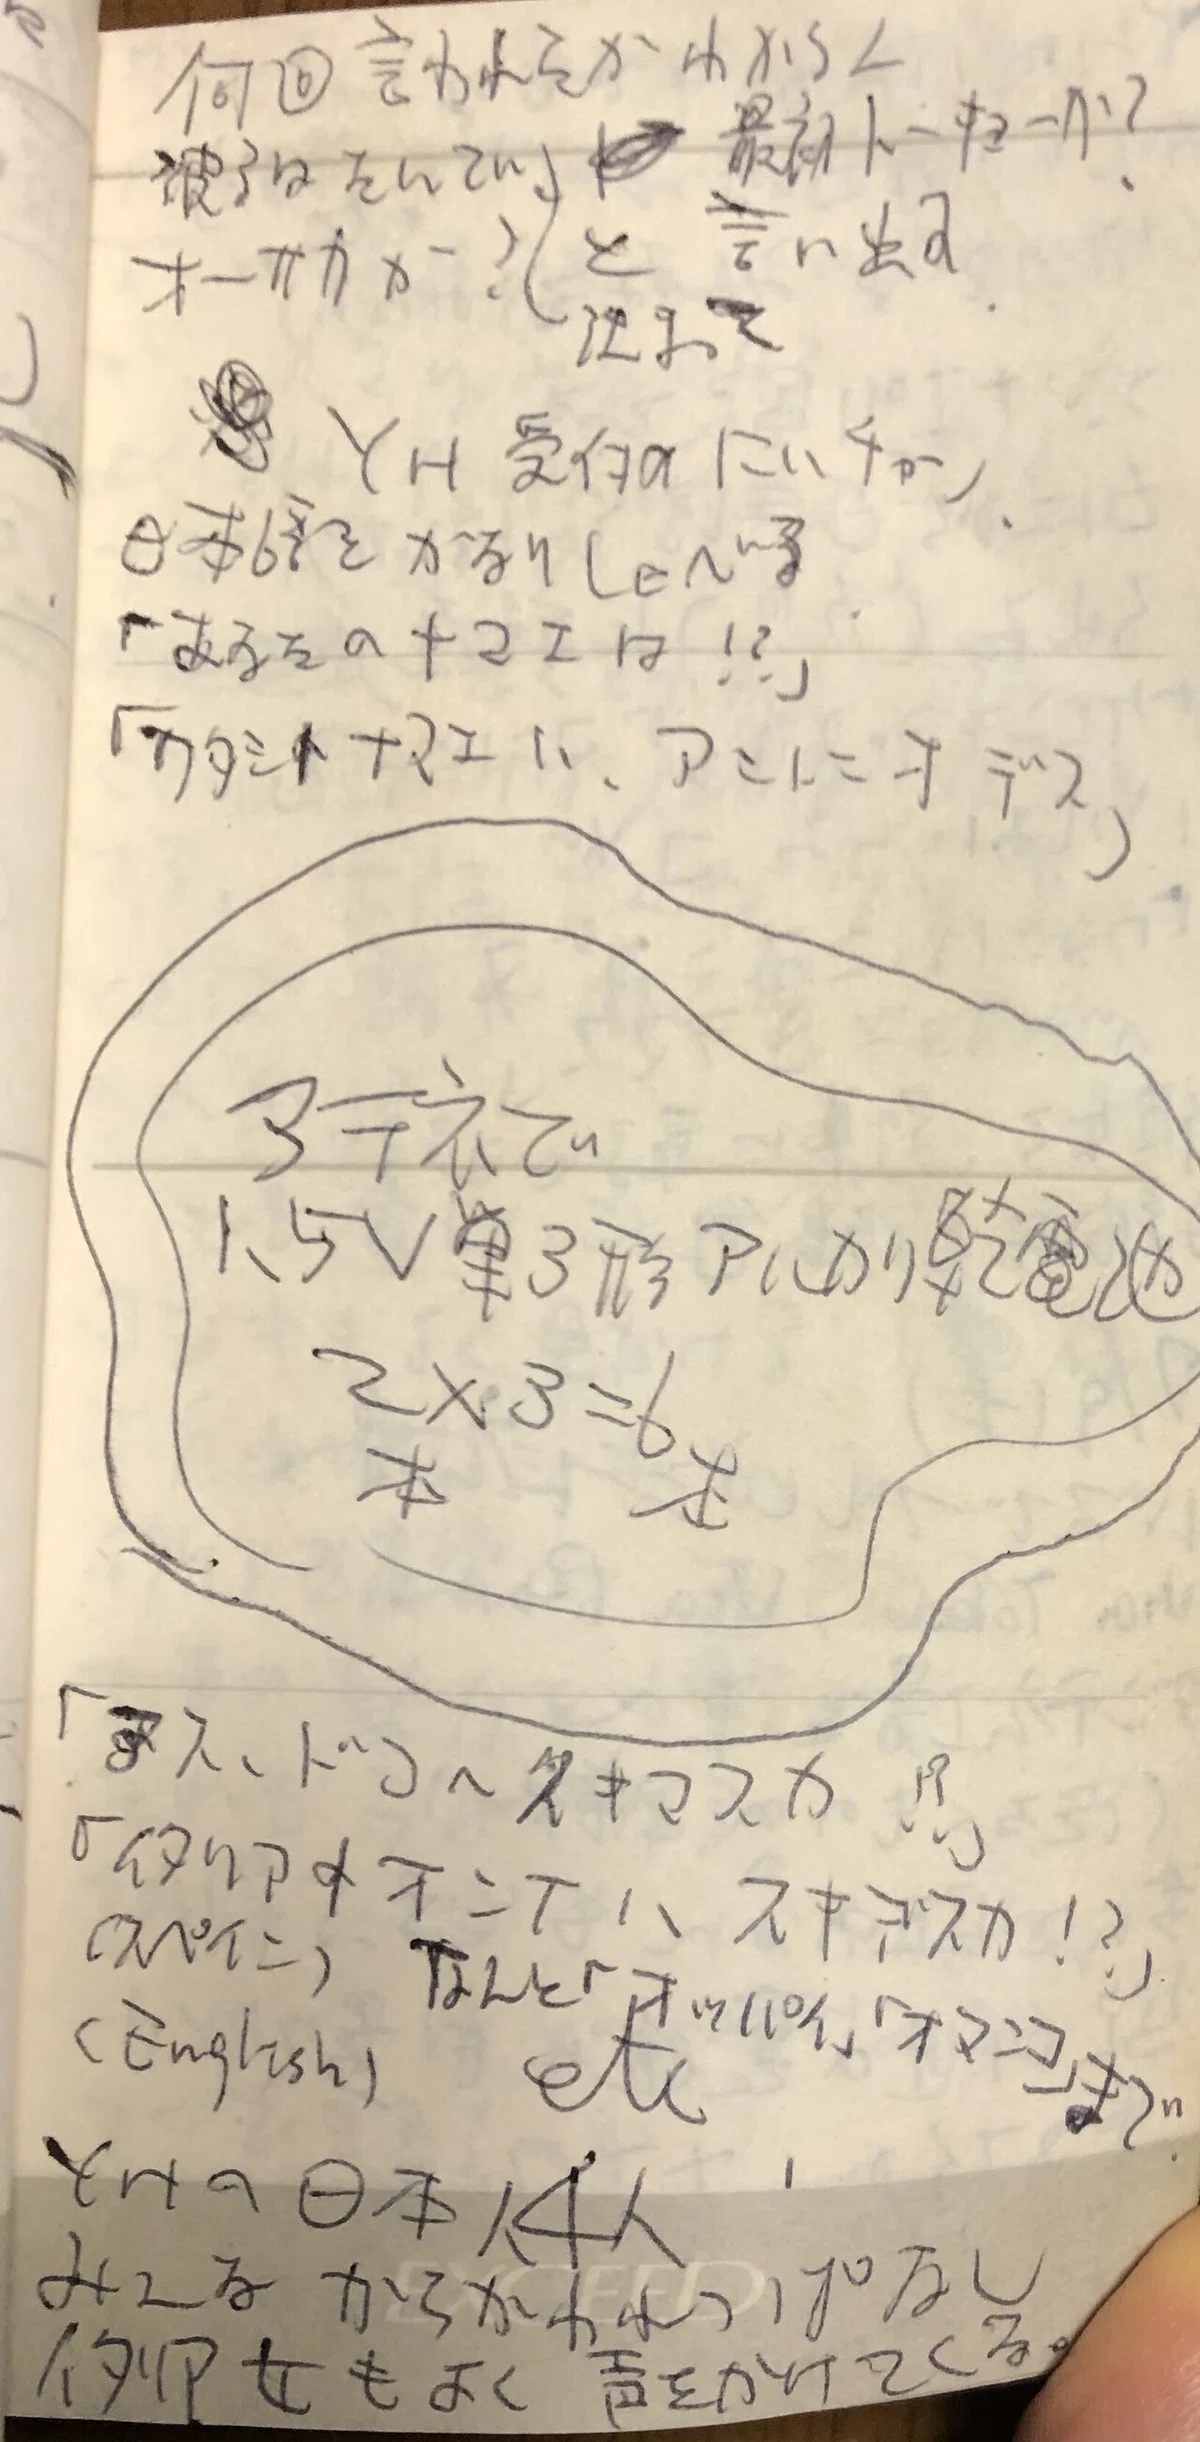 何回言われたかわからん
彼らはたいてい、最初トーキョーか?
オーサカか? と言い出す
決まって
YH 受付の にいチゃン
日本語を かなり しゃべる
「あなたのナマエは!?」
「ワタシノ ナマエハ、アントニオ デス」
アテネで
1.5V 単3形アルカリ乾電池
2×3=6
本 本
ドコヘ イキマスカ !?」
「イタリアノ オンナ ハ スキデスカ!?」
(スペイン) なんと「オッパイ」「オマンコ」まで
(English) etc
YHの日本人4人
みんな からかわれっぱなし
イタリア女もよく声をかけてくる。